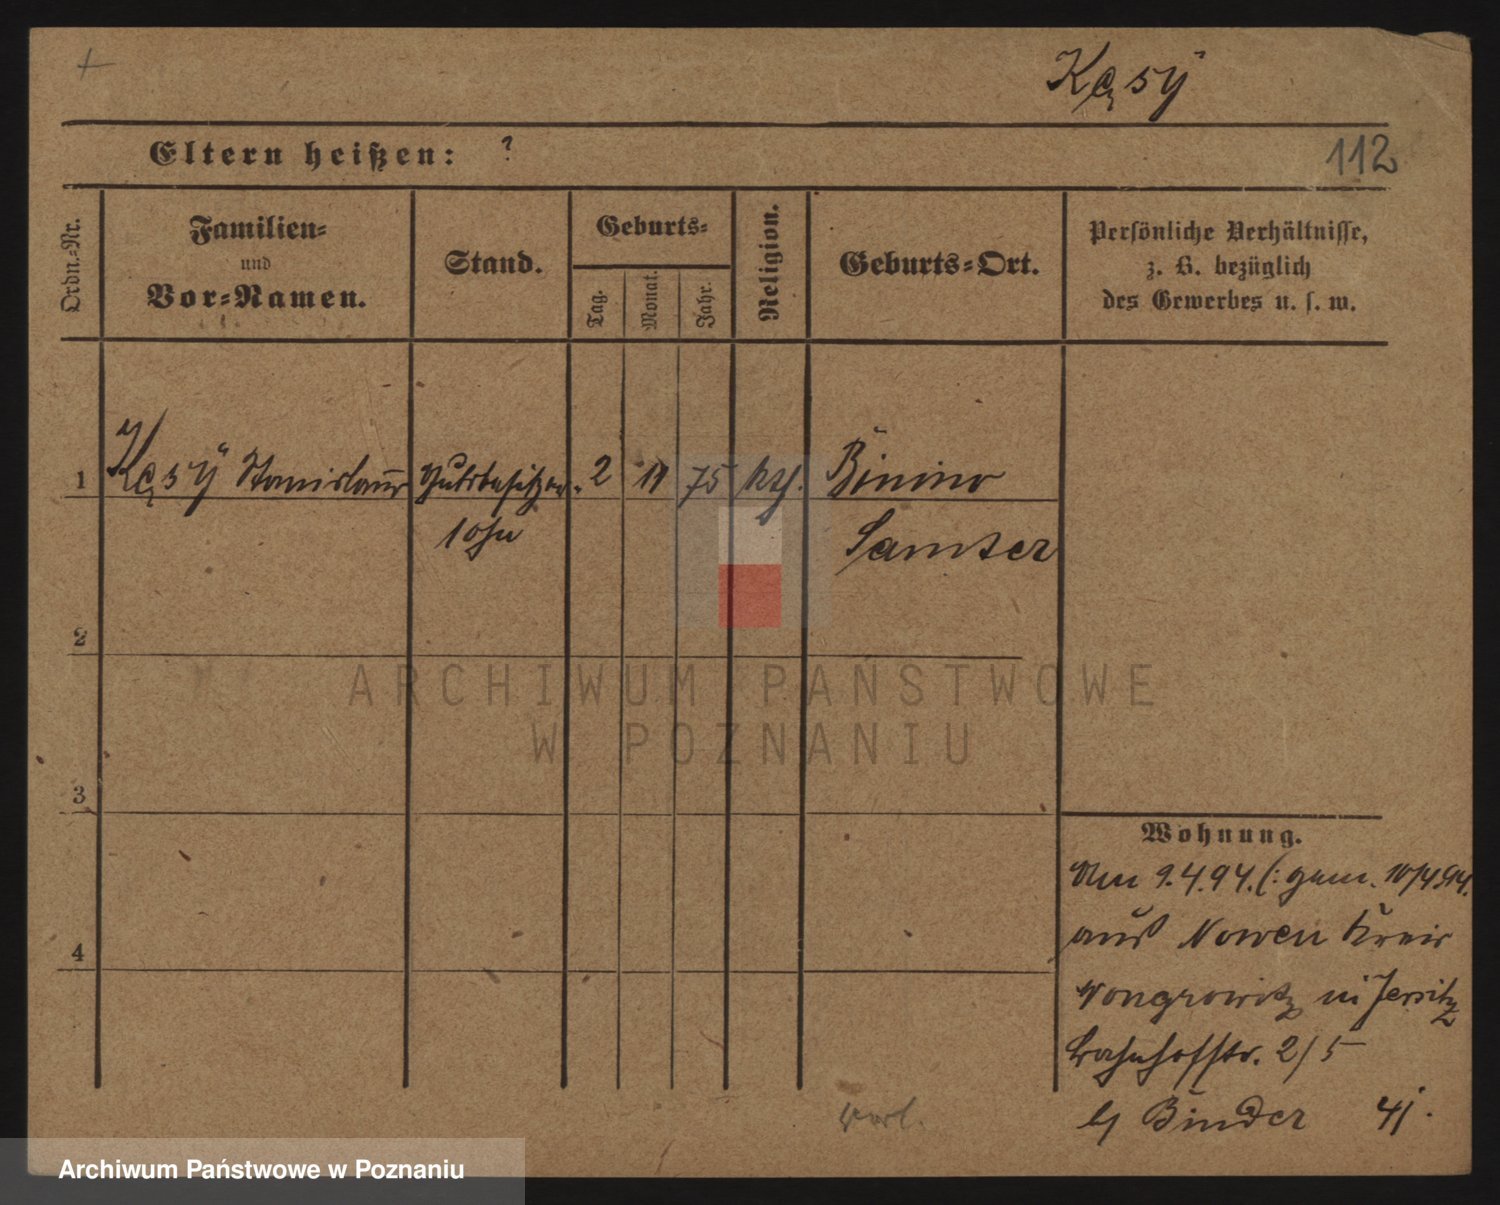 Kęsÿ
Eltern heißen: ?
112
Ordn.-Nr.
Familien-
und
Vor-Namen.
Stand.
Geburts-
Tag.
Monat.
Jahr.
Religion.
Geburts-Ort.
Persönliche Verhältnisse,
z. B. bezüglich
des Gewerbes u. s. w.
1 Kęsÿ Stanislaus Gutsbesitzer- 2 11 75 kth. Binino
Sohn
Samter
2
3
4
Wohnung.
Am 9.4.94. (: gem. 10/4.94.
aus Nowen Kreis
Wongrowitz in Jersitz
Bahnhofstr. 2/5
b/ Binder
ARCHIWUM PAŃSTWOWE
W POZNANIU
Archiwum Państwowe w Poznaniu